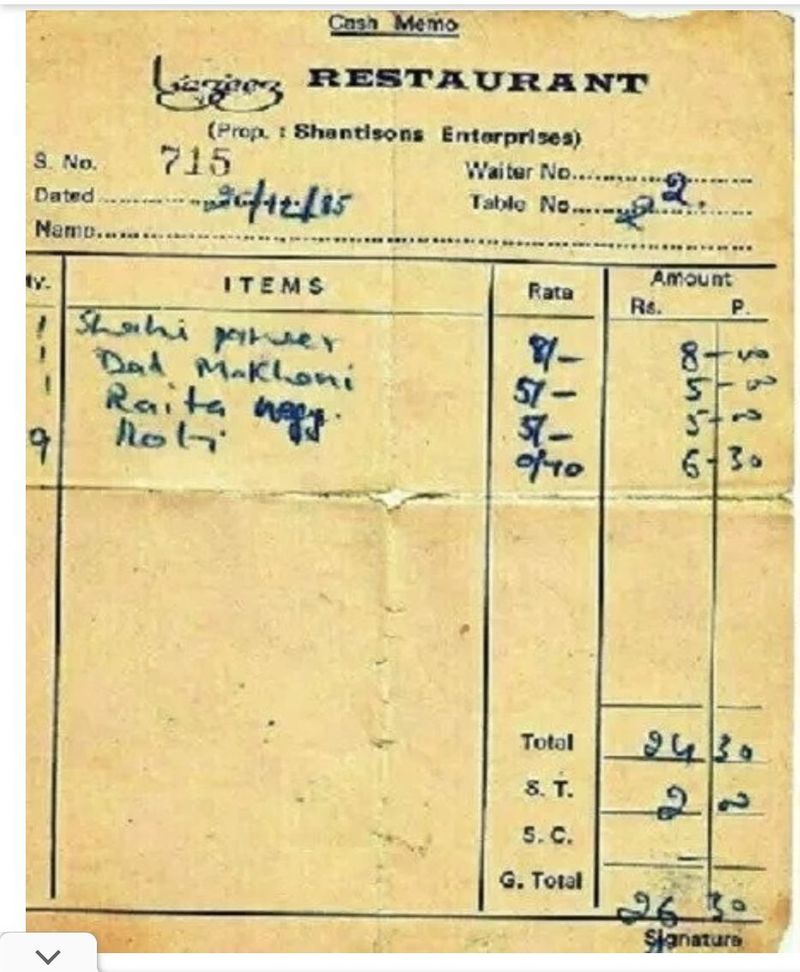 Cash Memo
Lazeez RESTAURANT
(Prop. : Shantisons Enterprises)
S. No. 715 Waiter No. 2.
Dated 26/12/85 Table No. 2
Name
ty. ITEMS Rate Amount
Rs. P.
1 Shahi paneer 8/- 8-00
1 Dal Makhani 5/- 5-00
1 Raita vegg. 5/- 5-00
9 Roti 0/70 6-30
Total 24 30
S. T. 2 00
S. C. —
G. Total 26 30
Signature